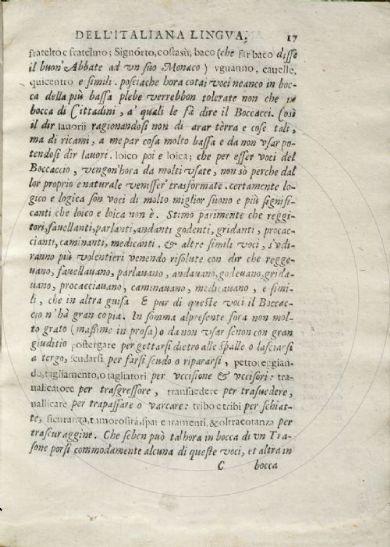 DELL'ITALIANA LINGVA. 17
fratelto e fratelmo; Signórto, costassù, baco (che far baco disse
il buon' Abbate ad vn suo Monaco) vguanno, cavelle,
quicentro e simili. posciache hora cotai voci neanco in boc-
ca della più bassa plebe verrebbon tolerate non che in
bocca di Cittadini, a' quali le fà dire il Boccacci. Così
il dir lauorij ragionandosi non di arar tèrra e cose tali,
ma di ricami, a me par cosa molto bassa e da non vsar po-
tendosi dir lauori. loico poi e loica; che per esser voci del
Boccaccio, vengon' hora da molti vsate, non sò perche dal
lor proprio e naturale venisser trasformate. certamente lo-
gico e logica son voci di molto miglior suono e più signifi-
canti che loico e loica non è. Stimo parimente che reggi-
tori, fauellanti, parlanti, andanti godenti, gridanti, procac-
cianti, caminanti, medicanti, & altre simili voci, s'vdi-
ranno più volentieri venendo risolute con dir che regge-
uano, fauellauano, parlauano, andauano, godeuano, grida-
uano, procacciauano, caminauano, medicauano, e simi-
li, che in altra guisa & pur di queste voci il Boccac-
cio n'hà gran copia. In somma alpresente fora non mol-
to grato (massime in prosa) o da non vsar senon con gran
giuditio postergare per gettarsi dietro alle spalle o lasciarsi
a tergo, scudarsi per farsi scudo o ripararsi,
do, tagliamento, o tagliatori per vccisione & vccisori: tra-
ualicatore per trasgressore, transuedere per trasuedere,
uallicare per trapassare o varcare: tribo e tribi per schiat-
te, sicuranza, tumorosità, & oltracotanza per
trascuraggine. Che seben può tal'hora in bocca di vn Tra-
sone porsi commodamente alcuna di queste voci, et altra in
C bocca